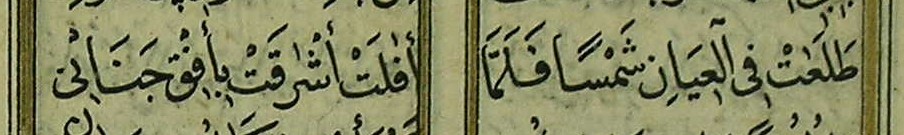 طَلَعَتْ فِي الْعَيَانِ شَمْسًا فَلَمَّا أَفَلَتْ أَشْرَقَتْ بِأُفْقِ جَنَانِي